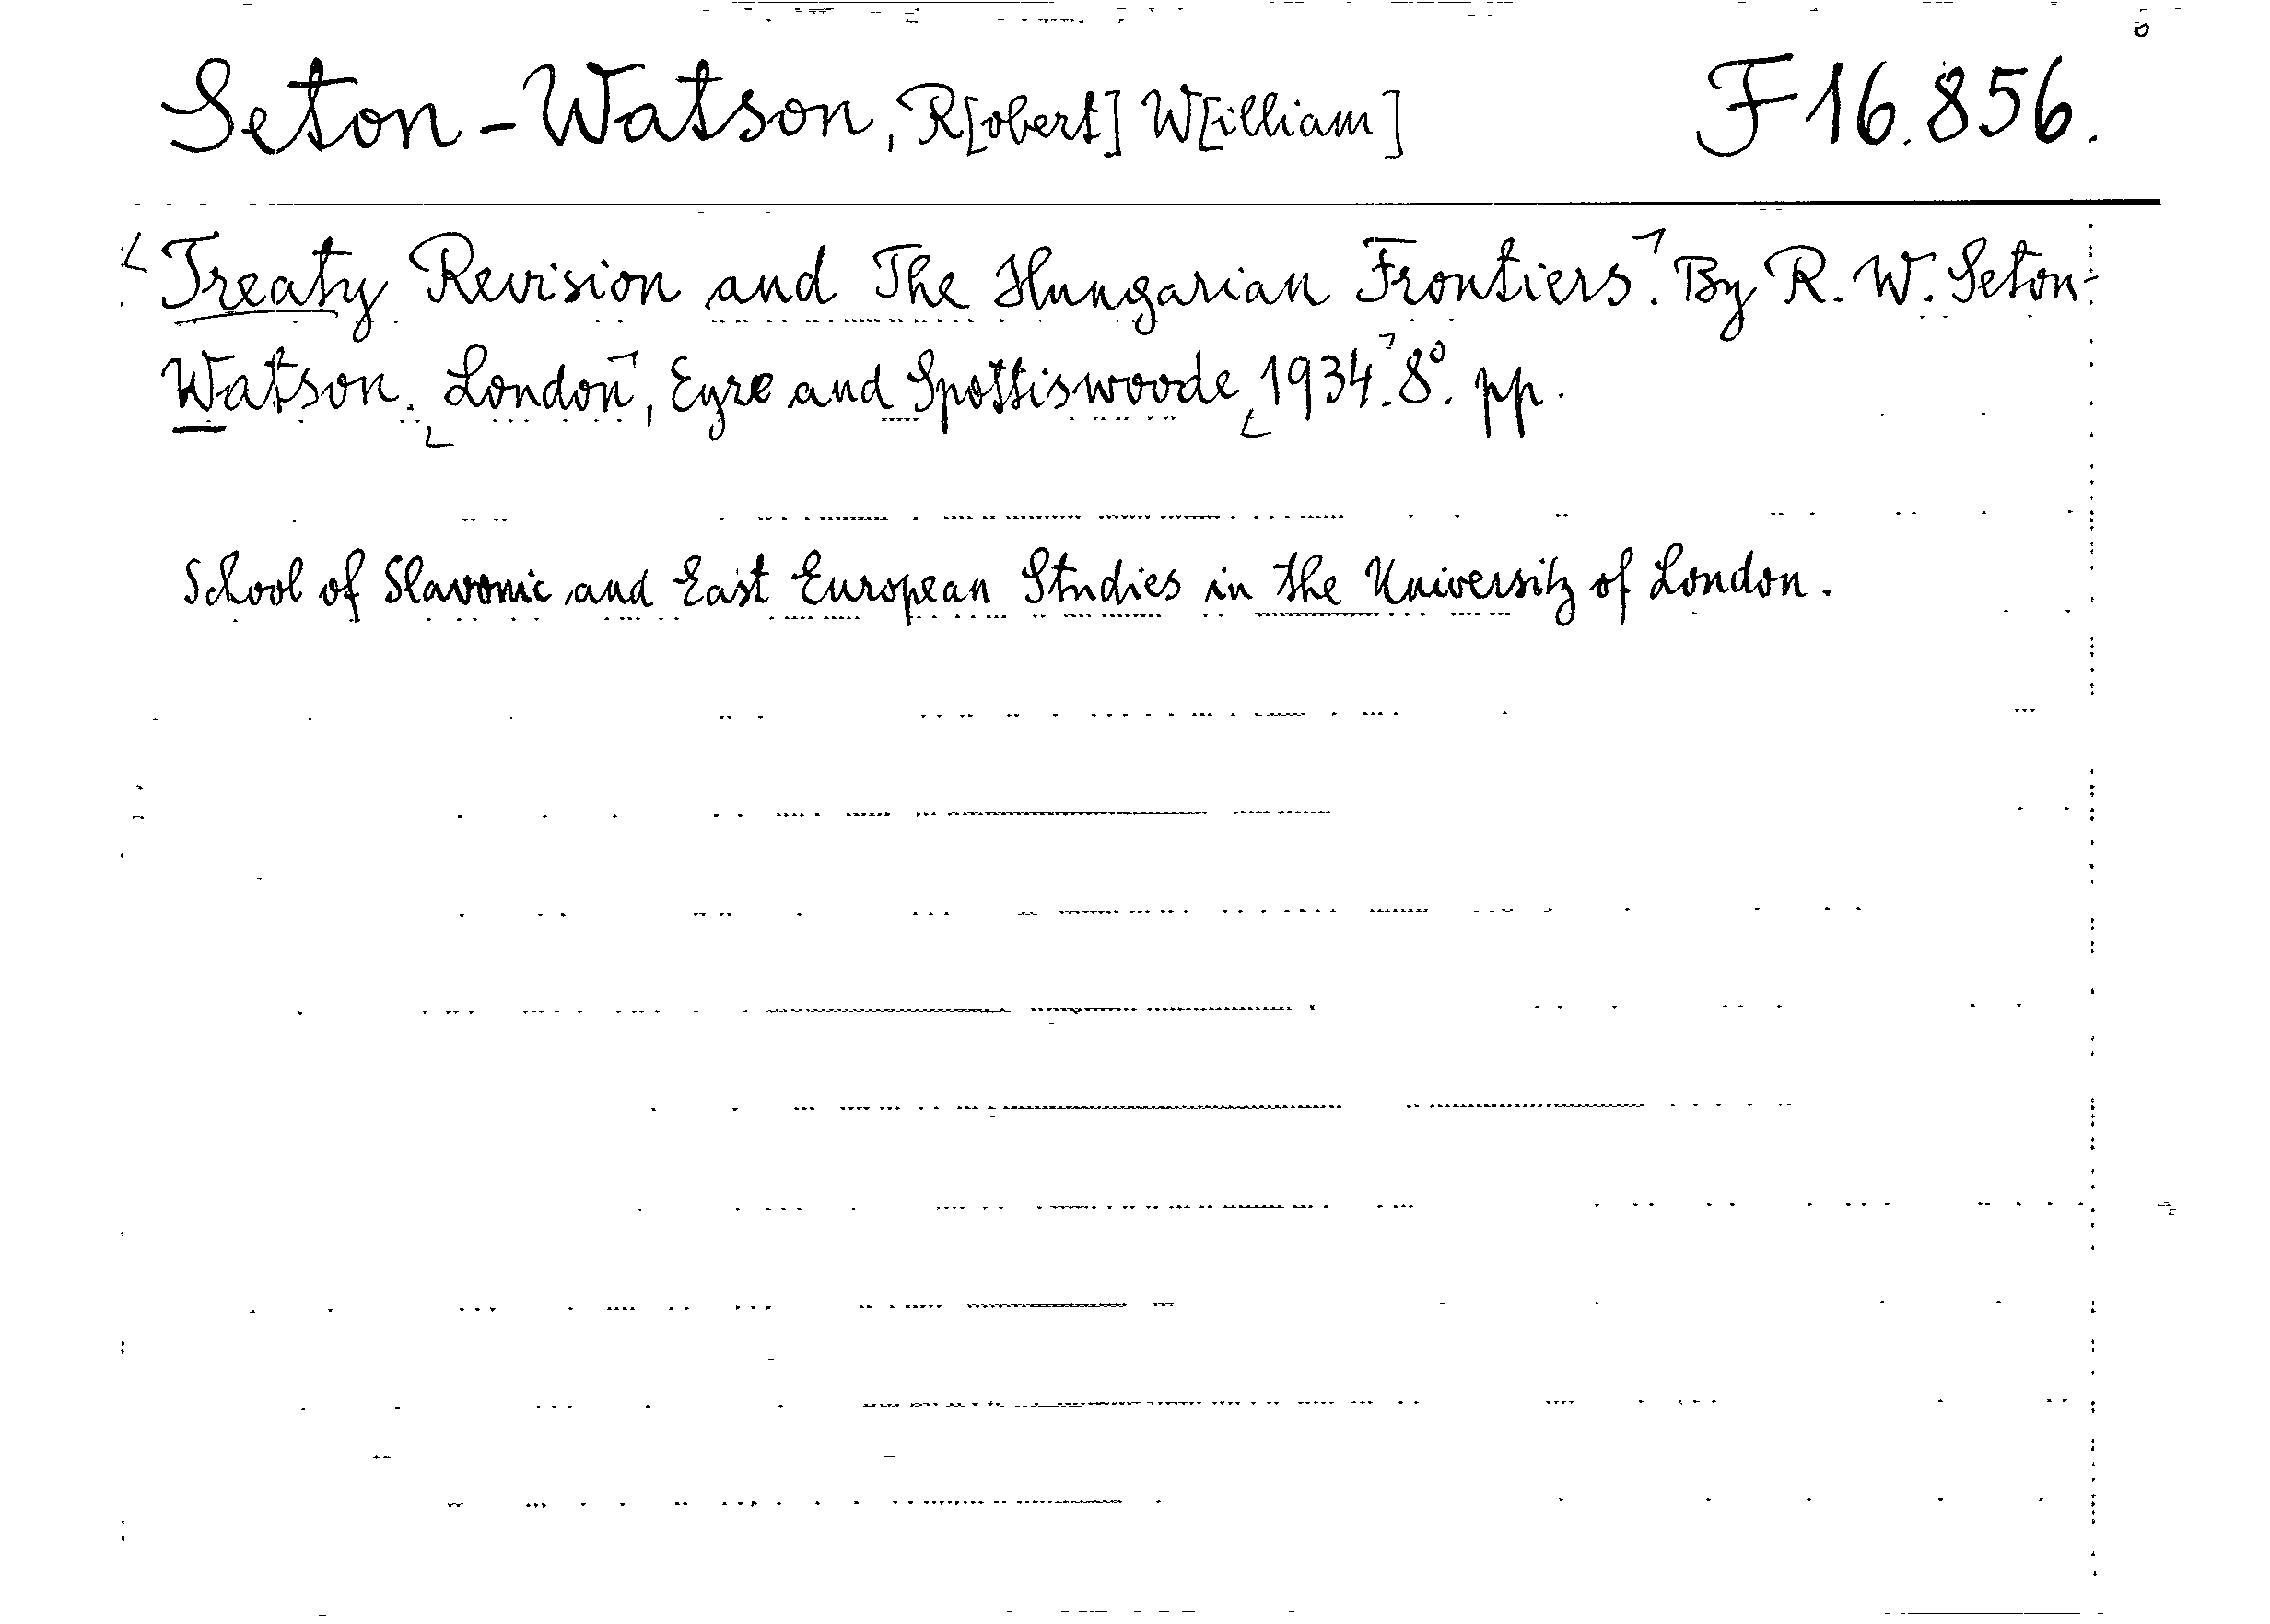 Seton-Watson, R[obert] W[illiam] F 16.856.
⌞Treaty Revision and The Hungarian Frontiers⌝. By R. W. Seton-
Watson. ⌞London⌝, Eyre and Spottiswoode ⌞1934⌝. 8⁰. pp.
School of Slavonic and East European Studies in the University of London.